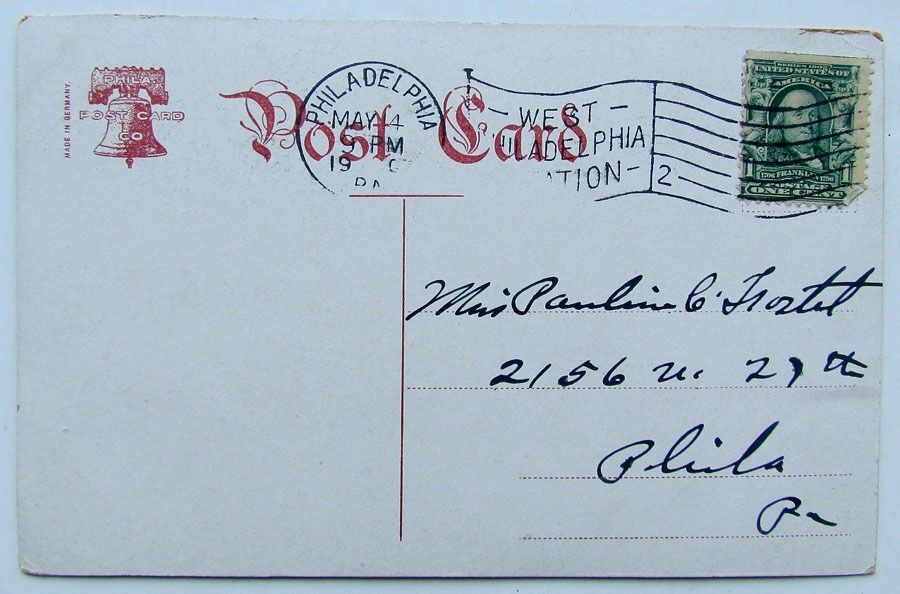 MADE IN GERMANY.
PHILA.
POST CARD
CO
Post Card
PHILADELPHIA
MAY 14
PM
19
PA
WEST
PHILADELPHIA
STATION
2
SERIES 1902
UNITED STATES OF
AMERICA
1706 FRANKLIN 1790
POSTAGE
1 ONE CENT 1
Miss Pauline C.
2156 N. 29th
Phila
Pa